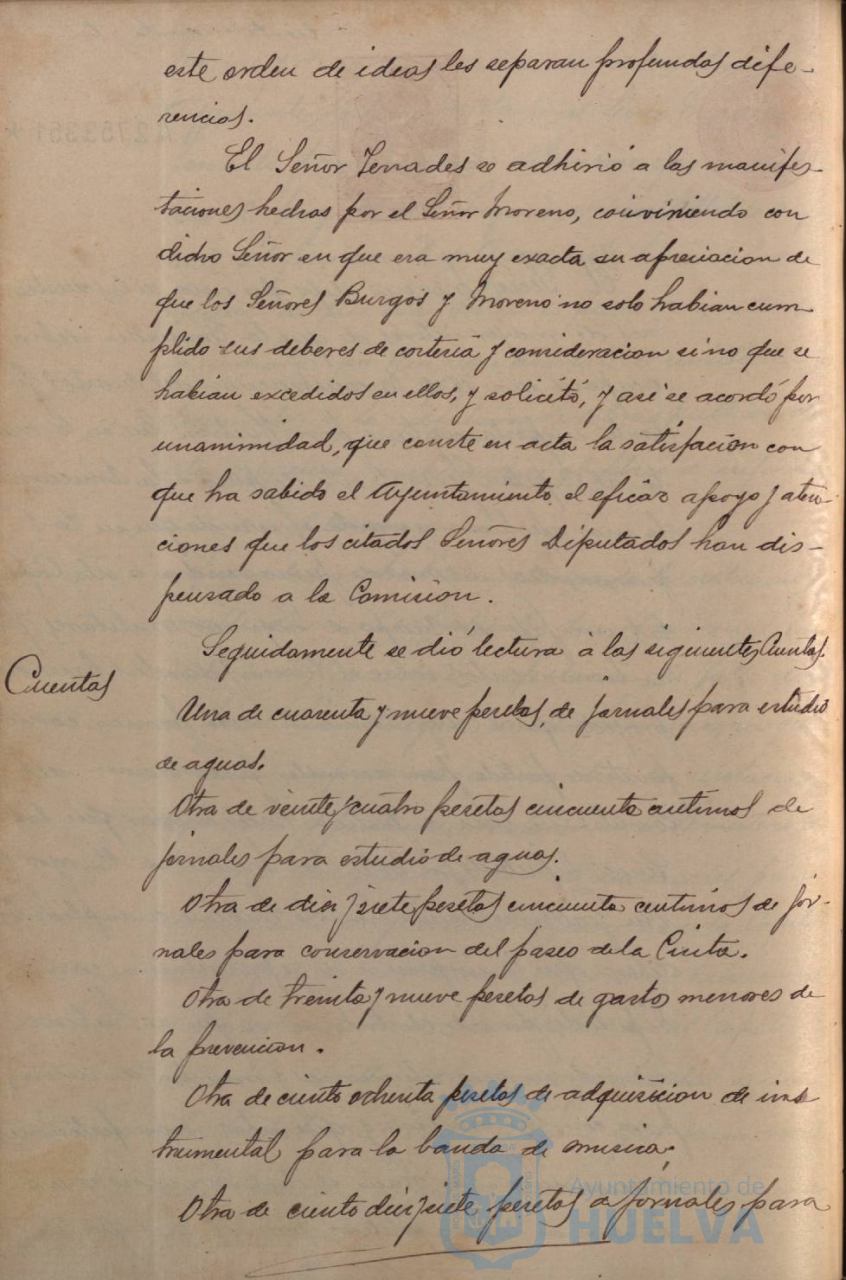 este orden de ideas les separan profundas dife-
rencias.
El Señor Terrades se adhirió a las manifes-
taciones hechas por el Señor Moreno, conviniendo con
dicho Señor en que era muy exacta su apreciacion de
que los Señores Burgos y Moreno no solo habian cum
plido sus deberes de cortesia y consideracion sino que se
habian excedidos en ellos, y solicitó, y asi se acordó por
unanimidad, que conste en acta la satisfacion con
que ha sabido el Ayuntamiento el eficaz apoyo y aten
ciones que los citados Señores Diputados han dis-
pensado a la Comision.
Seguidamente se dió lectura à las siguientes Cuentas.
Cuentas
Una de cuarenta y nueve pesetas, de jornales para estudio
de aguas.
Otra de veinte y cuatro pesetas cincuenta centimos de
jornales para estudio de aguas.
Otra de diez y siete pesetas cincuenta centimos de jor-
nales para conservacion del paseo de la Cinta.
Otra de treinta y nueve pesetas de gastos menores de
la prevencion.
Otra de ciento ochenta pesetas de adquisicion de ins
trumental para la banda de musica.
Otra de ciento diez y siete pesetas a jornales para
Ayuntamiento de
HUELVA